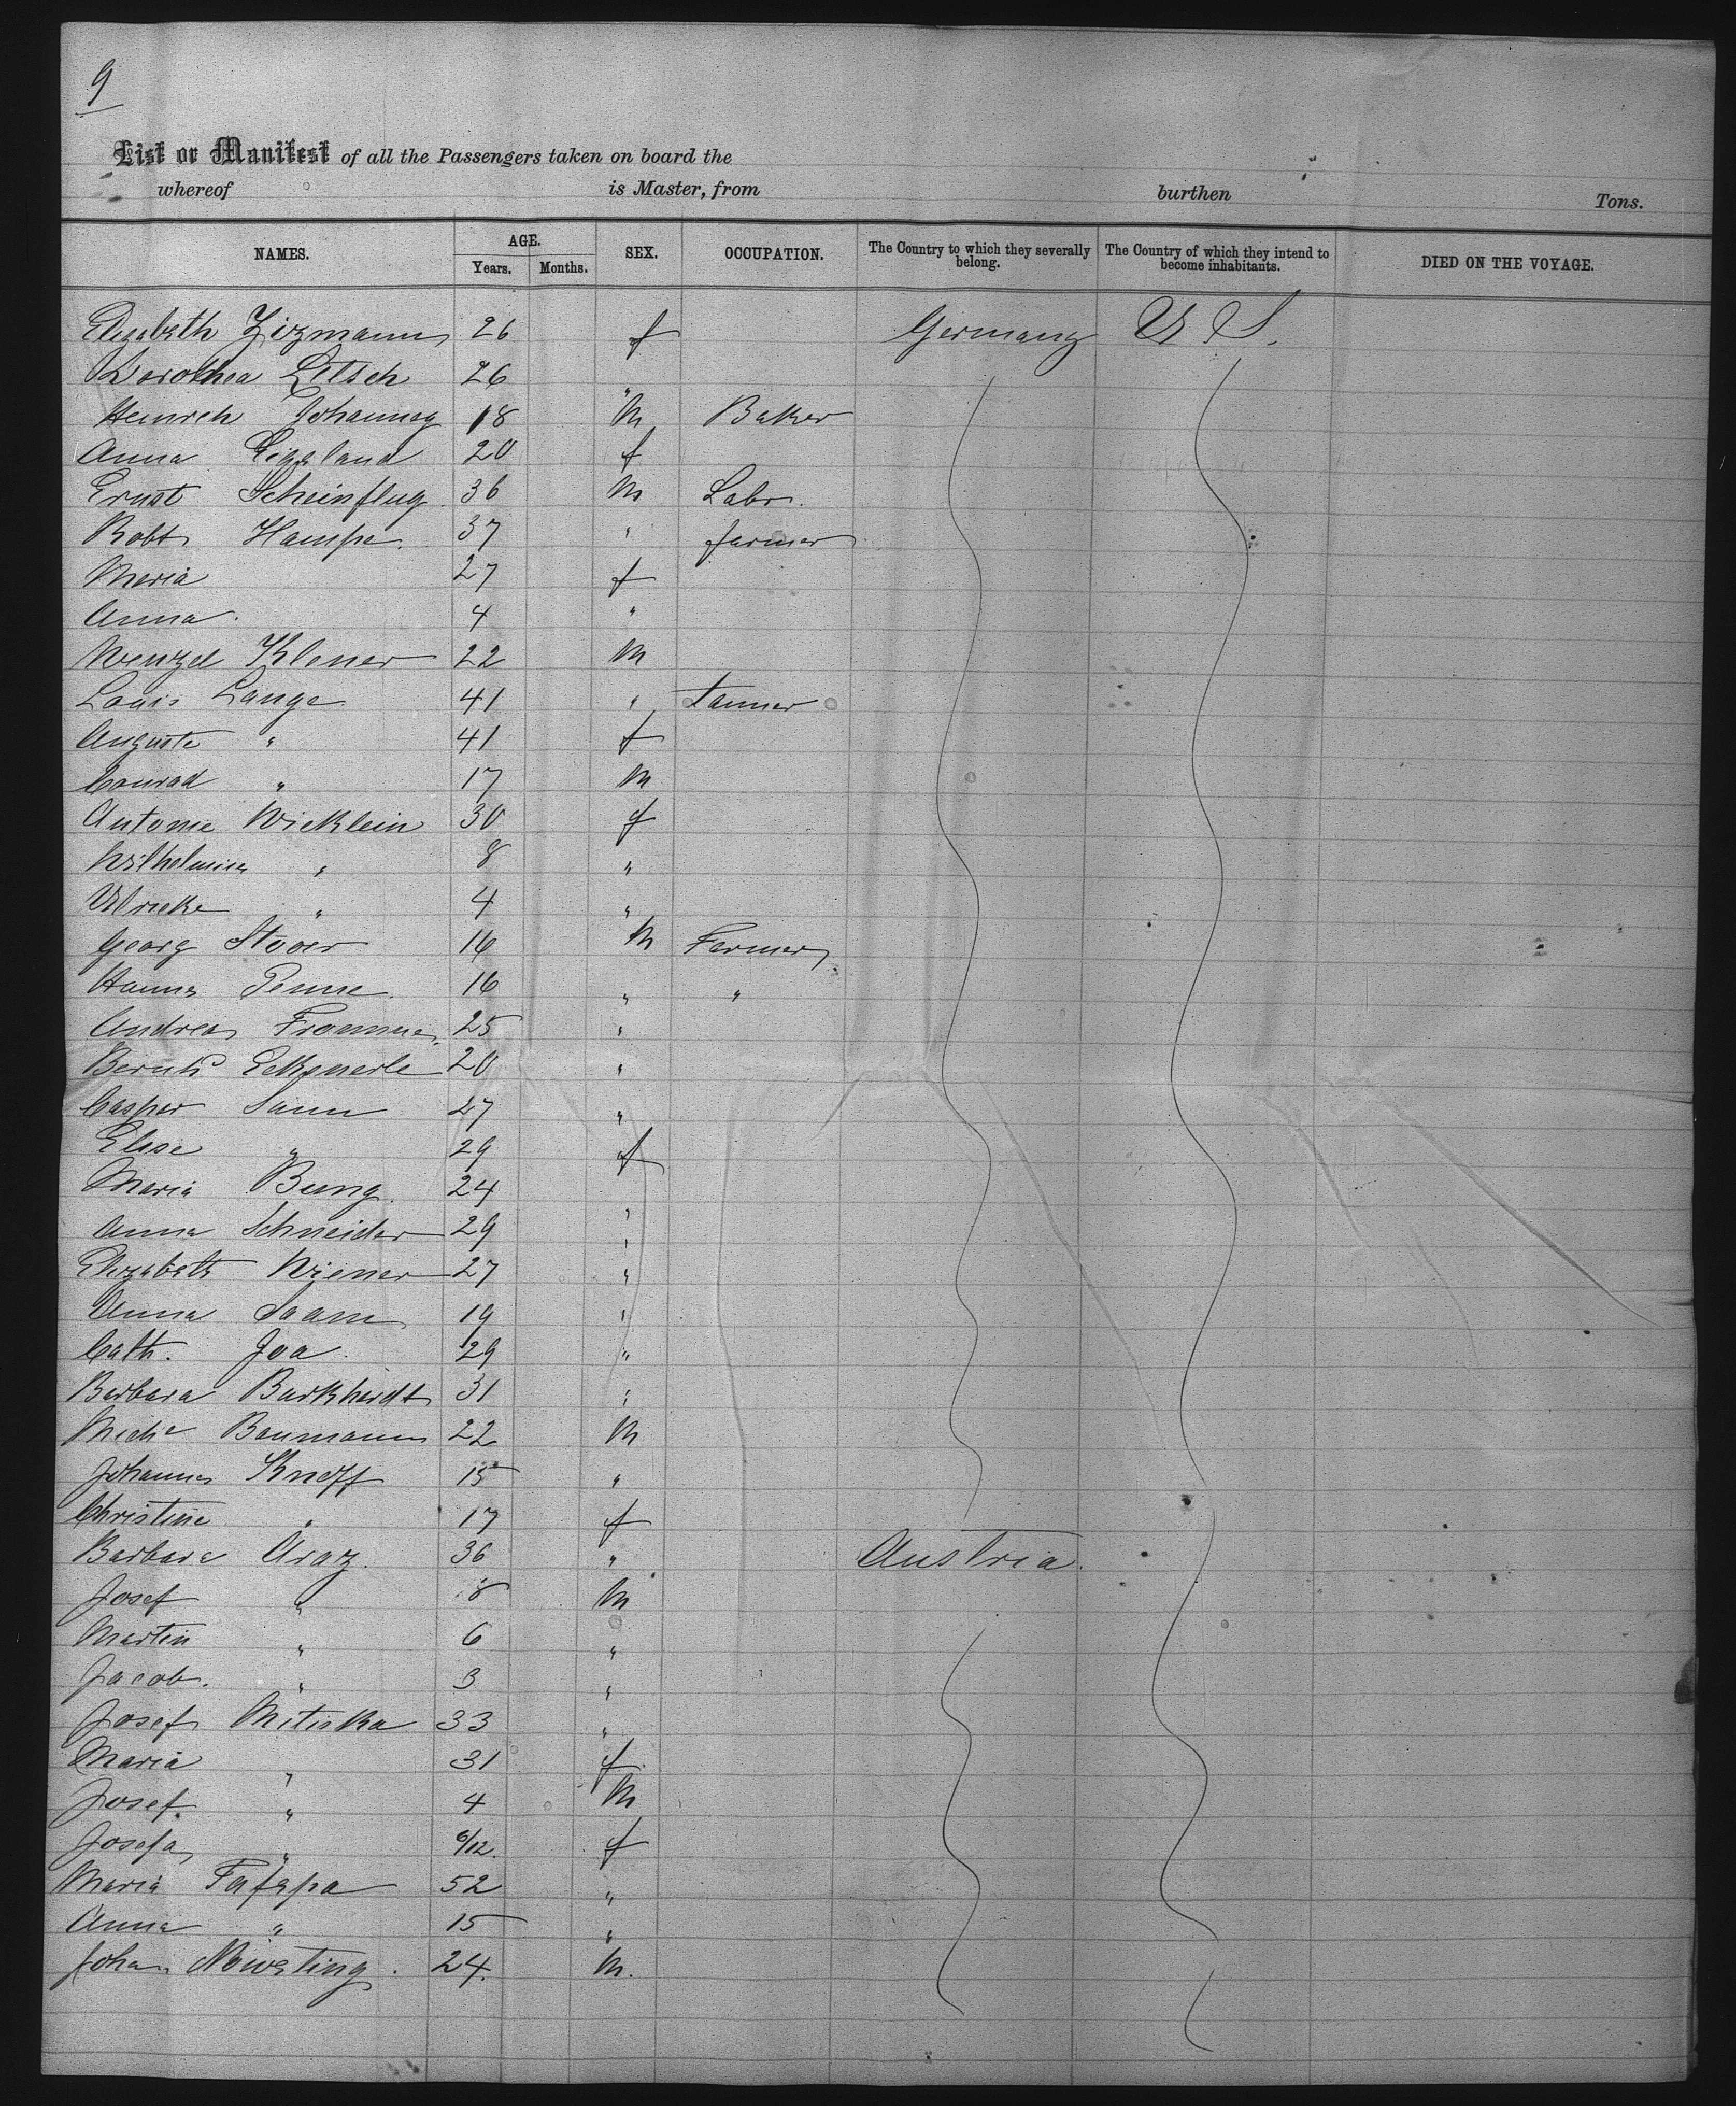 9
List or Manifest of all the Passengers taken on board the
whereof is Master, from burthen Tons.
NAMES. AGE. Years. Months. SEX. OCCUPATION. The Country to which they severally belong. The Country of which they intend to become inhabitants. DIED ON THE VOYAGE.
Elizabeth Zizmann 26 f Germany U S.
Dorothea Letsch 26 "
Heinrich Johannes 18 M Baker
Anna 20 f
Ernst Scheinflug 36 M Labr.
Robt Hampe 37 " farmer
Maria 27 f
Anna. 4 "
Wenzel Klener 22 M
Louis Lange 41 " tanner
Auguste " 41 f
Conrad " 17 M
Antonie Wicklein 30 f
Wilhelmina " 8 "
Ulricke " 4 "
Georg Stoer 16 M Farmer
Hannes Penne 16 " "
Andreas Fromme 25 "
Bernh 20 "
Caspar Saum 27 "
Elise " 29 f
Maria Bung 24 "
Anna Schneider 29 "
Elizabeth Wiener 27 "
Anna Saam 19 "
Cath. Joa 29 "
Barbara Burkhardt 31 "
Michl Baumann 22 M
Johannes Knoff 15 "
Christine " 17 f
Barbara Araz 36 " Austria.
Josef " 8 M
Martin " 6 "
Jacob. " 3 "
Josef Mitiska 33 "
Maria " 31 f
Josef. " 4 M
Josefa " 6/12. f
Maria 52 "
Anna " 15 "
Johan 24. M.